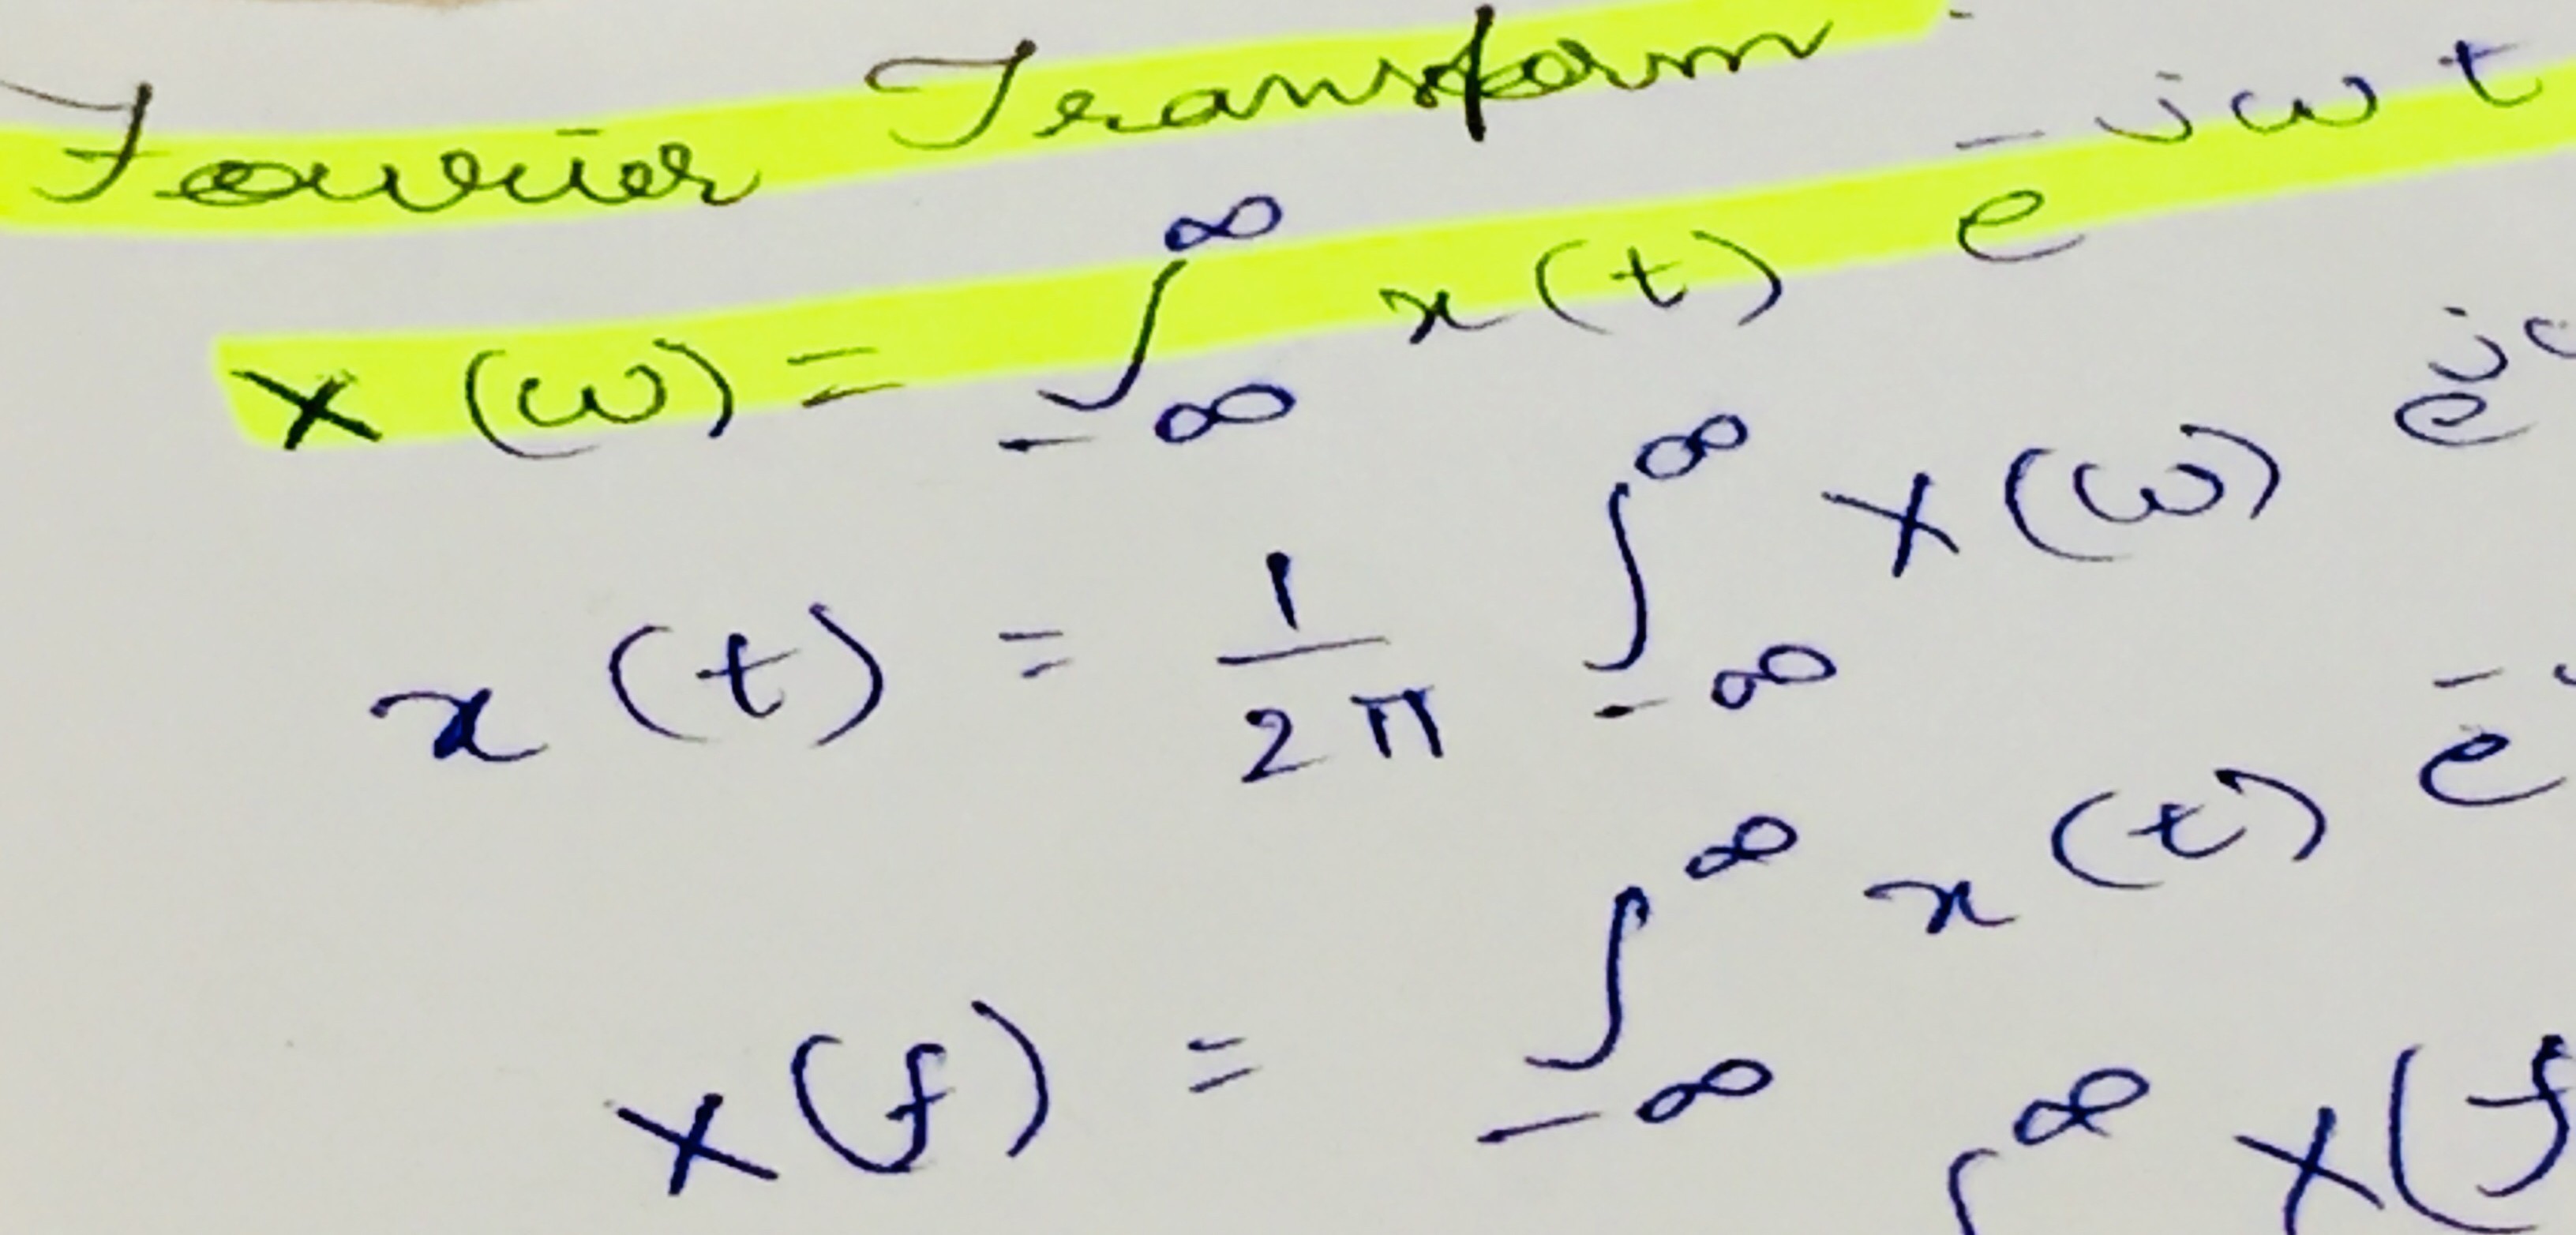 Fourier Transform
X (ω) = ∫_{-∞}^{∞} x (t) e^{-jωt}
x (t) = \frac{1}{2π} ∫_{-∞}^{∞} X (ω) e^{j
X (f) = ∫_{-∞}^{∞} x (t) e^{-
∫^{∞} X (f